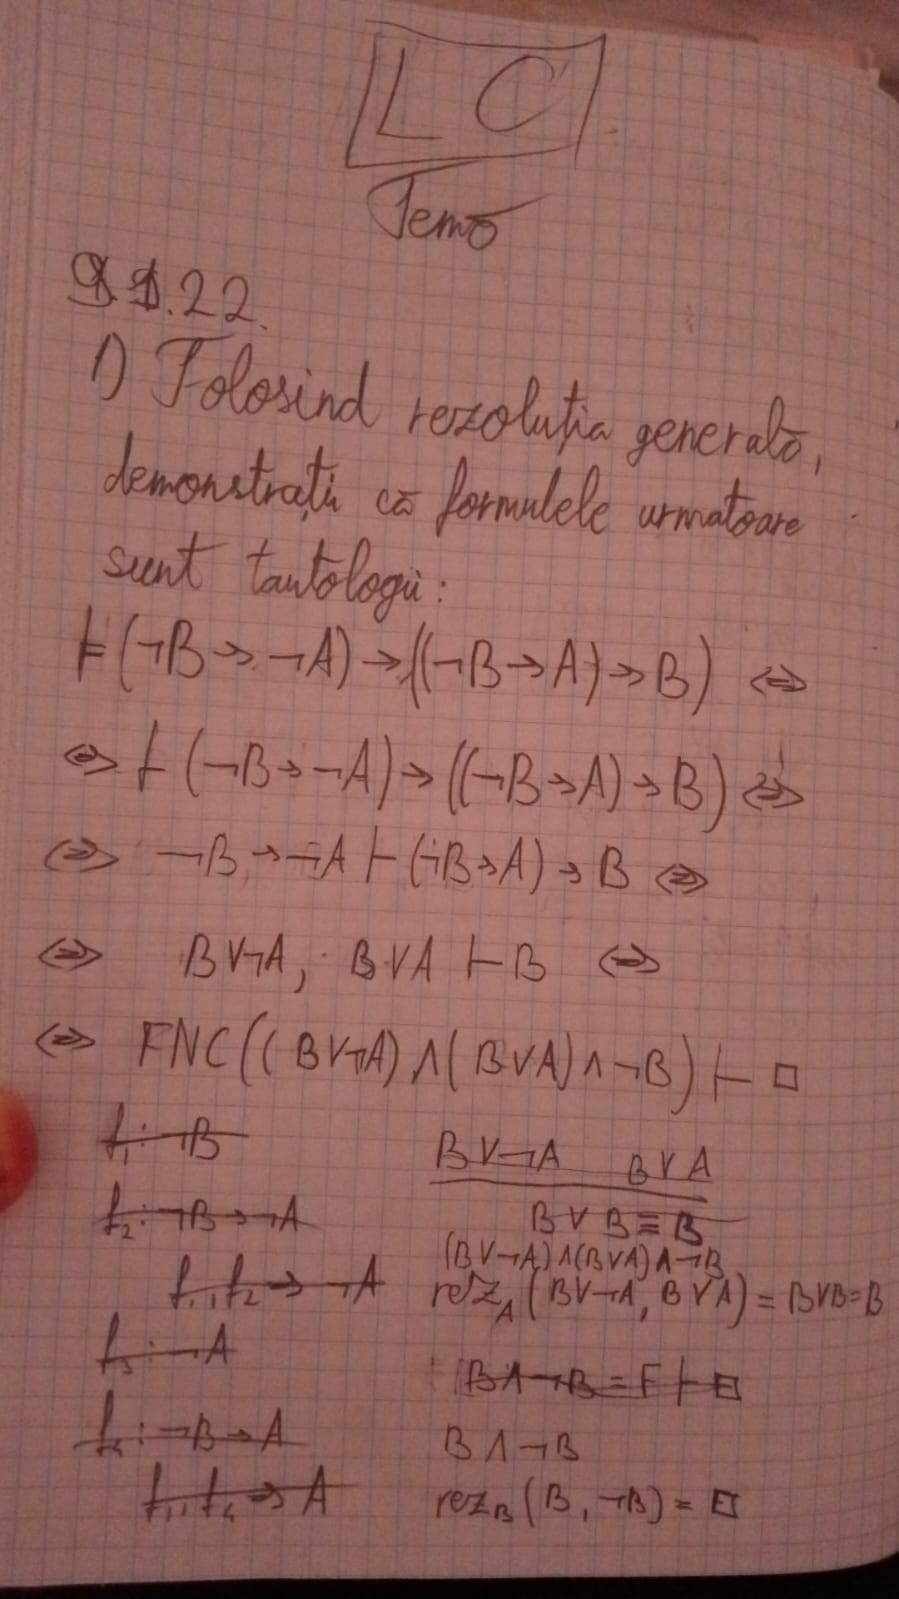 LC
Temă
S1.22.
1) Folosind rezoluția generală,
demonstrați că formulele urmatoare
sunt tautologii:
⊨(¬B→¬A)→((¬B→A)→B) ⇔
⇔ ⊢(¬B→¬A)→((¬B→A)→B) ⇔
⇔ ¬B→¬A ⊢ (¬B→A)→B ⇔
⇔ B∨¬A, B∨A ⊢ B ⇔
⇔ FNC((B∨¬A)∧(B∨A)∧¬B) ⊢ □
f₁: ¬B
f₂: ¬B→¬A
f₁,f₂ ⇒ ¬A
f₃: ¬A
f₄: ¬B→A
f₁,f₄ ⇒ A
B∨¬A B∨A
B∨B≡B
(B∨¬A)∧(B∨A)∧¬B
rez_A(B∨¬A, B∨A)=B∨B=B
B∧¬B=F ⊢ □
B∧¬B
rez_B(B,¬B)=□